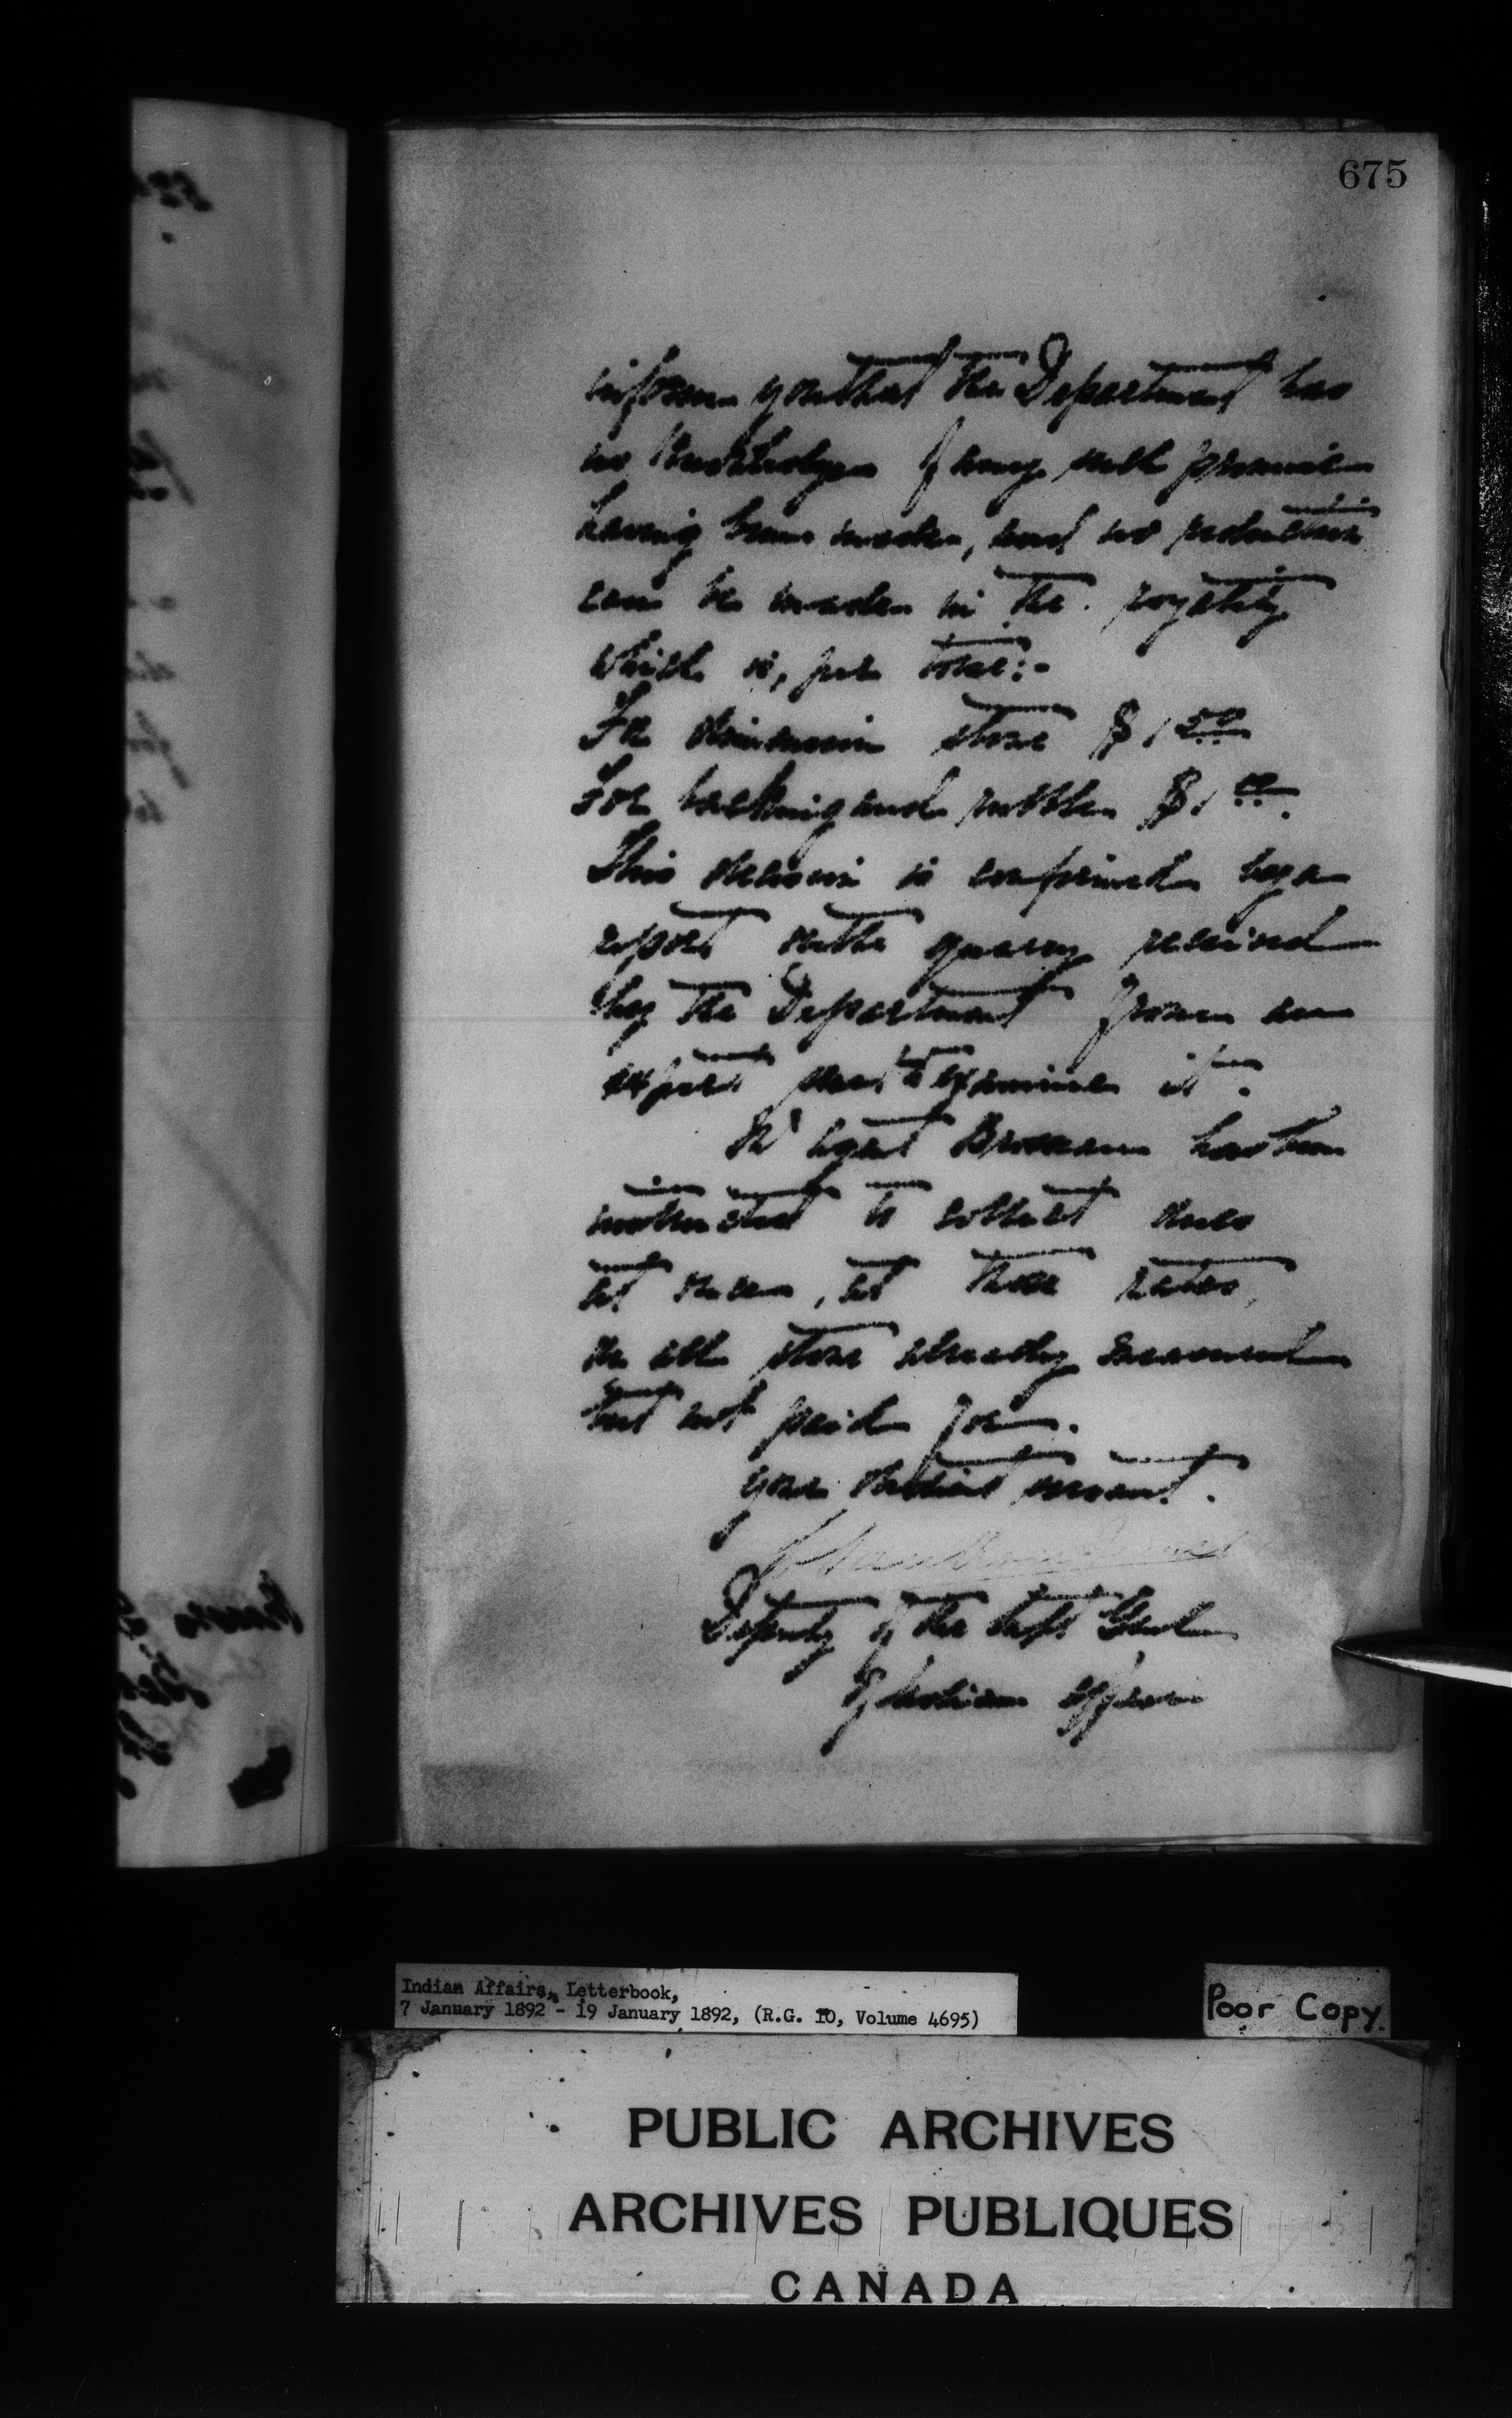 675
inform you that the Department has
no knowledge of any such promise
having been made, and no reduction
can be made in the royalty
which is, per toise:-
For dimension stone $1.50
For backing and rubble $1.00.
This decision is confirmed by a
report on the quarry received
by the Department from an
expert sent to examine it.
Agent has been
instructed to collect dues
at once, at these rates,
on all stone already measured
but not paid for.
Your obedient servant.
Deputy of the Supt Genl
of Indian Affairs
Indian Affairs, Letterbook,
7 January 1892 - 19 January 1892, (R.G. 10, Volume 4695)
Poor Copy.
PUBLIC ARCHIVES
ARCHIVES PUBLIQUES
CANADA